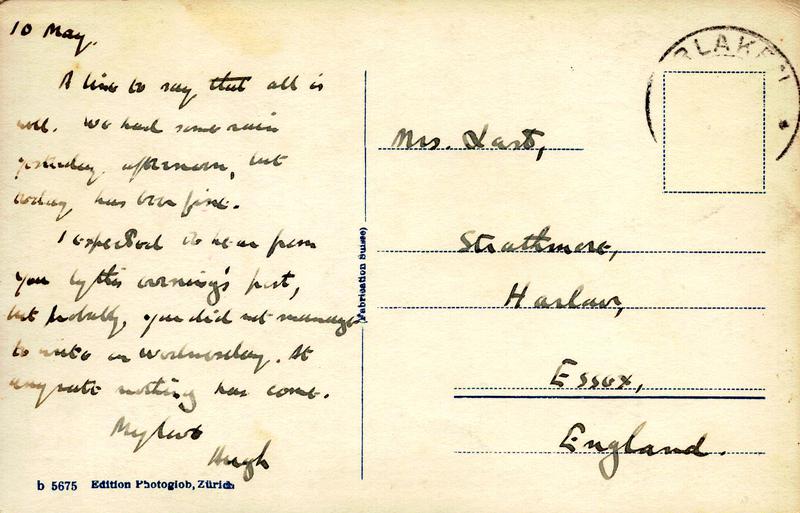 10 May.
A line to say that all is
well. We had some rain
yesterday afternoon, but
today has been fine.
I expected to hear from
you by this evening's post,
but probably, you did not manage
to write on Wednesday. At
anyrate nothing has come.
My love
Hugh
b 5675 Edition Photoglob, Zürich
(Fabrication Suisse)
RLAKEN
Mrs. Last,
Strathmore,
Harlow,
Essex,
England.